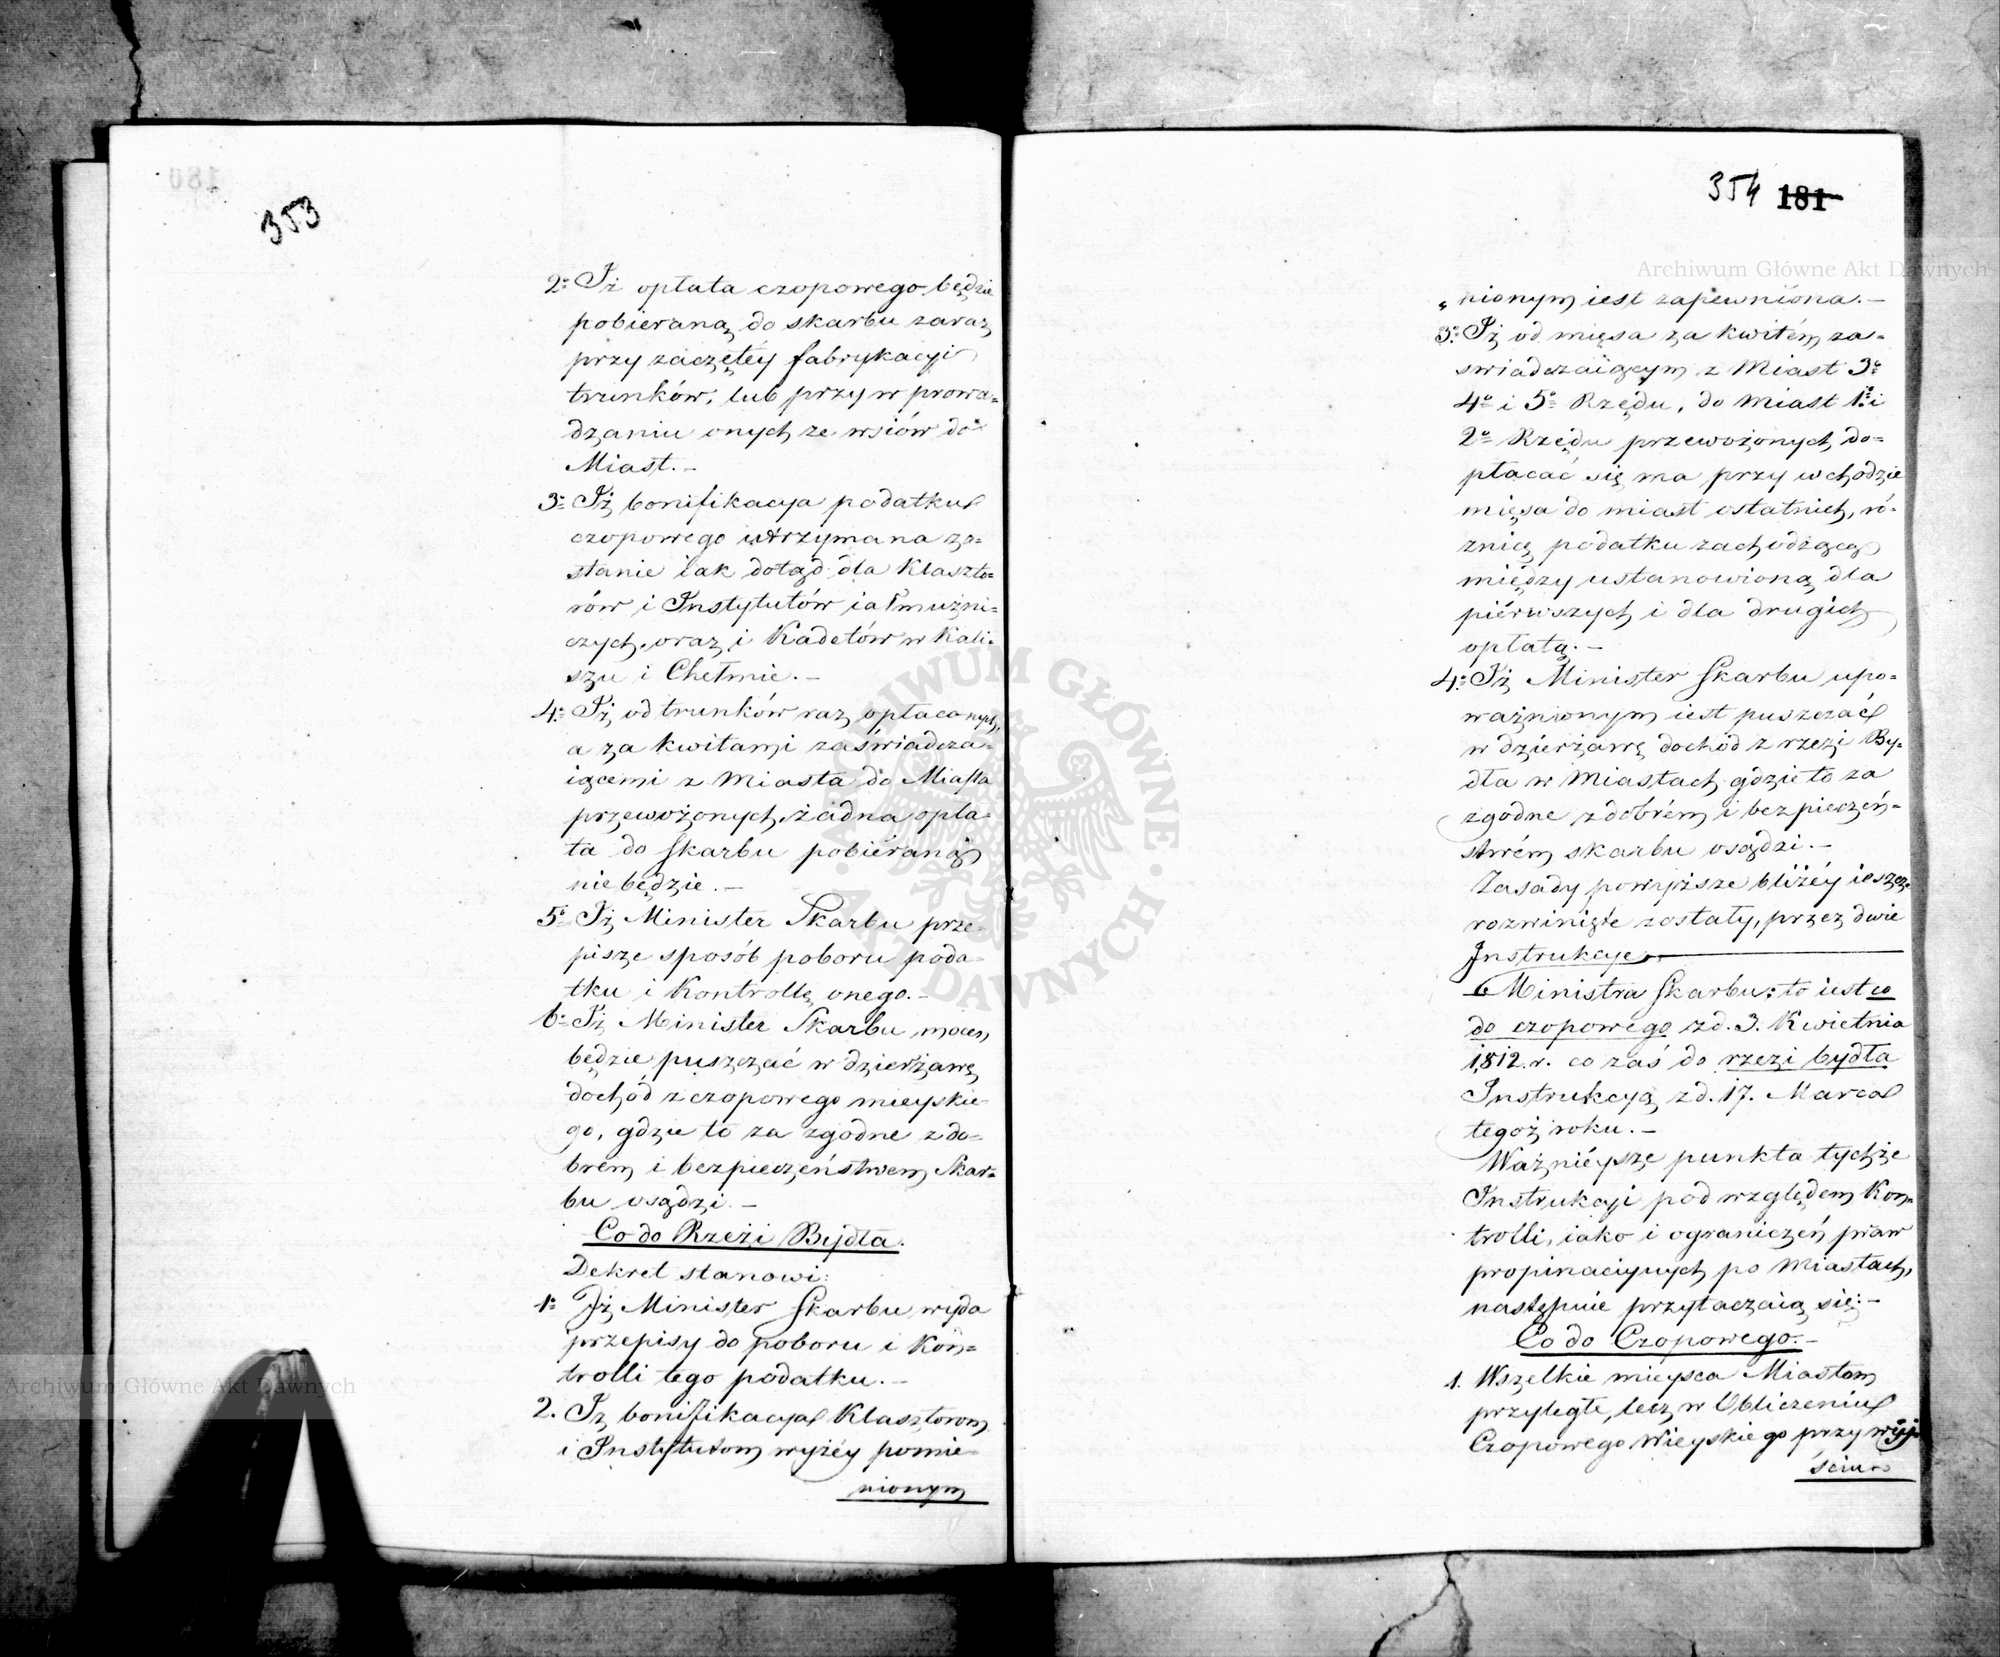 353
2º Iż opłata czopowego będzie
pobieraną do skarbu zaraz
przy zaczętéy fabrykacyi
trunków, lub przy wprowa=
dzaniu onych ze wsiów do
Miast.—
3º Iż bonifikacya podatku
czopowego utrzymana zo=
stanie iak dotąd dla Klaszto=
rów i Instytutów iałmużni=
czych, oraz i Kadetów w Kali=
szu i Chełmie.—
4º Iż od trunków raz opłaconych,
a za kwitami zaświadcza=
iącemi z Miasta do Miasta
przewożonych, żadna opła=
ta do skarbu pobiéraną
nie będzie.—
5º Iż Minister Skarbu prze=
pisze sposób poboru poda=
tku i Kontrollę onego.—
6º Iż Minister Skarbu mocen
będzie puszczać w dzierżawę
dochód z czopowego mieyskie=
go, gdzie to za zgodne z do=
brem i bezpieczeństwem Skar=
bu osądzi.—
Co do Rzezi Bydła.
Dekret stanowi:
1º Iż Minister Skarbu wyda
przepisy do poboru i Kon=
trolli tego podatku.—
2. Iż bonifikacya Klasztorom
i Instytutom wyżéy pomie=
nionym
354 181
„nionym iest zapewniona.—
3º Iż od mięsa za kwitém za=
swiadczaiącym z Miast 3º
4º i 5º Rzędu, do Miast 1º i
2º Rzędu przewożonych do=
płacać się ma przy wchodzie
mięsa do miast ostatnich, ró=
żnicę podatku zachodzącą
między ustanowioną dla
piérwszych i dla drugich
opłatą.—
4º Iż Minister Skarbu upo=
ważnionym iest puszczać
w dzierżawę dochód z rzezi By=
dła w Miastach gdzie to za
zgodne z dobrém i bezpieczeń=
stwém skarbu osądzi.—
Zasady powyższe bliżéy ieszcze
rozwinięte zostały, przez dwie
Instrukcye
Ministra Skarbu: to iest co
do czopowego z d. 3. Kwietnia
1812. r. co zaś do rzezi bydła
Instrukcyą z d. 17. Marca
tegoż roku.—
Ważniéysze punkta tychże
Instrukcyi pod względem Kon=
trolli, iako i ograniczeń praw
propinacyinych po Miastach,
następnie przytaczaią się:—
Co do Czopowego.—
1. Wszelkie mieysca Miastom
przyległe, lecz w Obliczeniu
Czopowego Wieyskiego przy wyj=
ściu
Archiwum Główne Akt Dawnych
Archiwum Główne Akt Dawnych
ARCHIWUM GŁÓWNE · AKT DAWNYCH ·